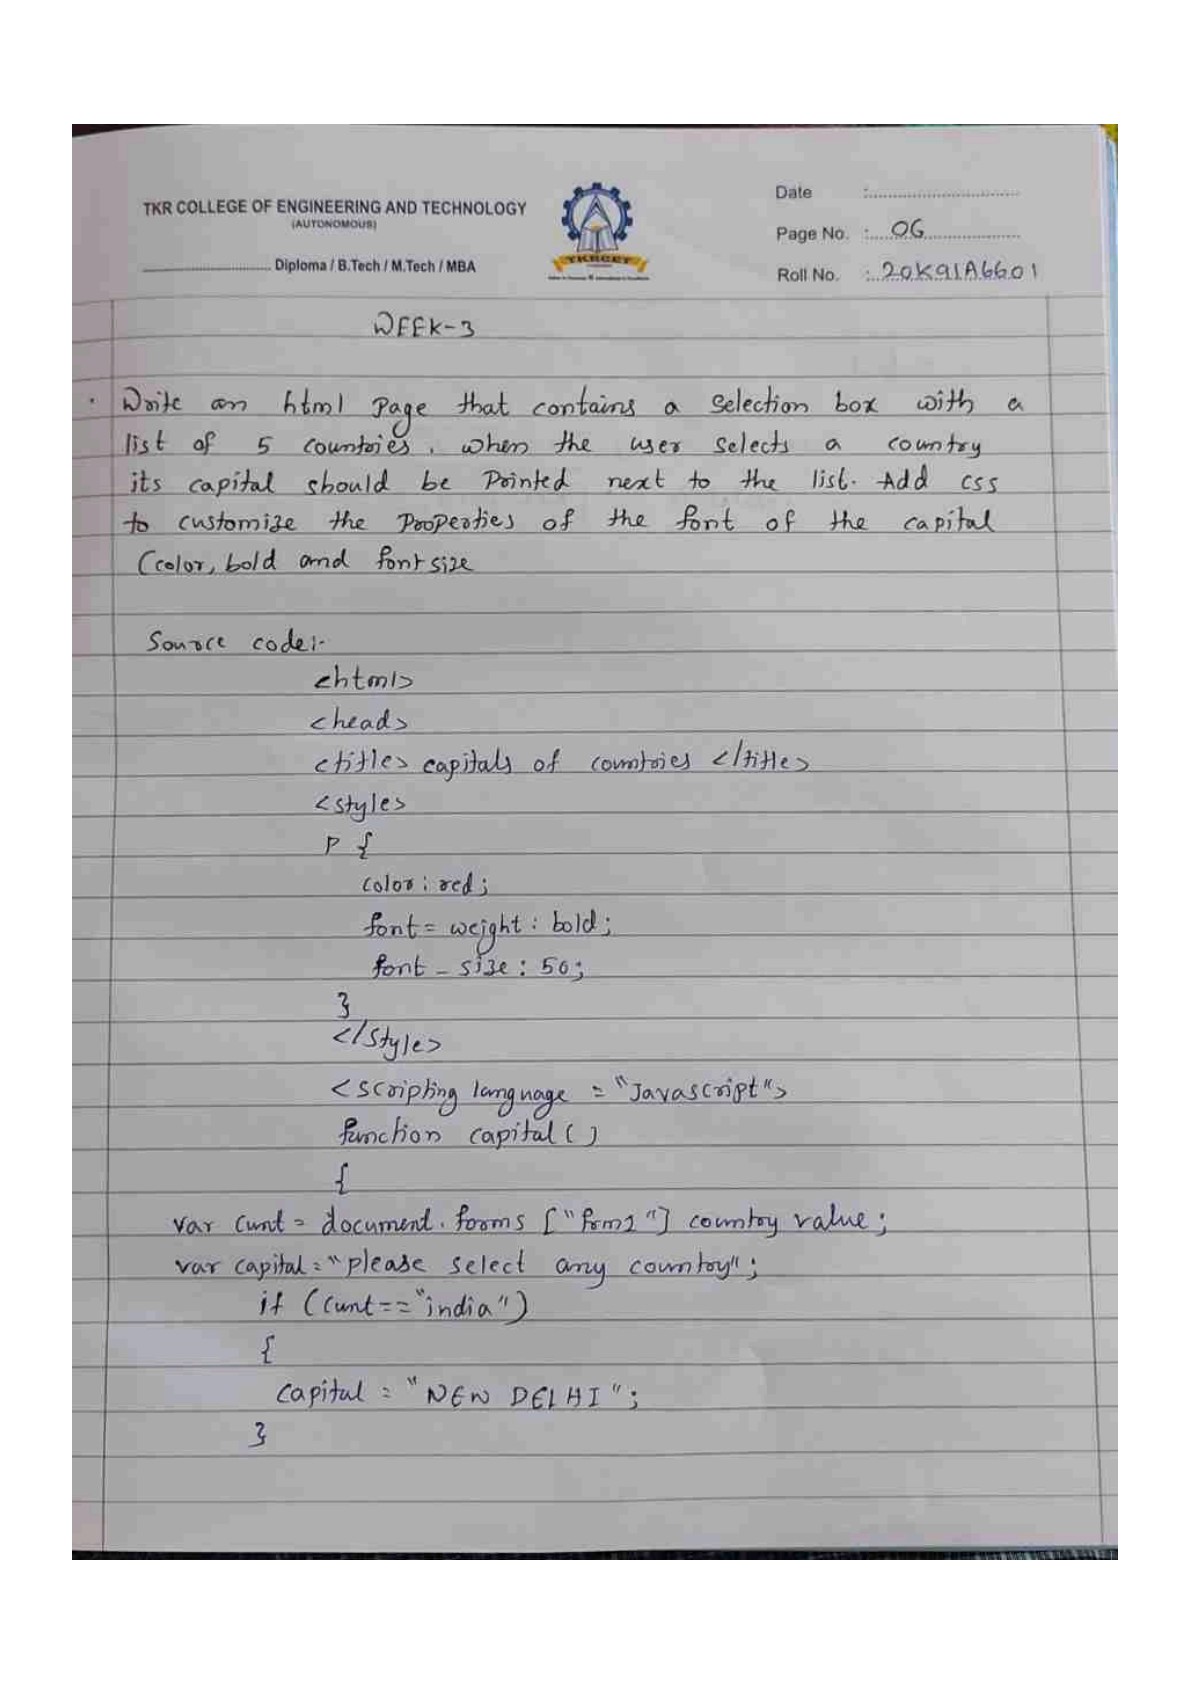 TKR COLLEGE OF ENGINEERING AND TECHNOLOGY
(AUTONOMOUS)
.............................. Diploma / B.Tech / M.Tech / MBA
TKRCET
Date :..............................
Page No. :.....06...................
Roll No. :..20K91A6601
WEEK-3
. Write an html page that contains a selection box with a
list of 5 countries. when the user selects a country
its capital should be Printed next to the list. Add css
to customize the Properties of the font of the capital
(color, bold and font size
Source code:-
<html>
<head>
<title> capitals of countries </title>
<style>
P {
color: red;
font= weight : bold;
font - size : 50;
}
</style>
<scripting language = "Javascript">
function capital ( )
{
var cunt = document. forms ["frm1"] country value;
var capital = "please select any country";
if (cunt == "india")
{
capital = "NEW DELHI";
}